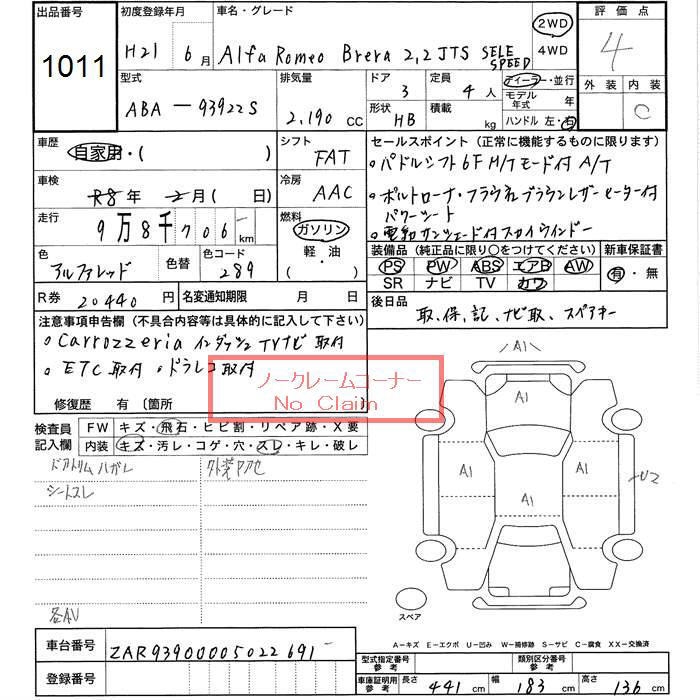 出品番号
1011
初度登録年月
H21 6月
車名・グレード
Alfa Romeo Brera 2,2 JTS SELE SPEED
2WD
4WD
評価点
4
外装 内装
C
型式
ABA-93922S
排気量
2,190 CC
ドア
3
形状
HB
定員
4人
積載
kg
ディーラー・並行
モデル年式 年
ハンドル 左・右
車歴
自家用・( )
シフト
FAT
車検
R8年 2月( 日)
冷房
AAC
走行
9万8千706km
燃料
ガソリン
軽・油
( )
色
アルファレッド
色替
色コード
289
R券 20440円
名変通知期限 月 日
セールスポイント(正常に機能するものに限ります)
・パドルシフト6F M/Tモード付 A/T
・ポルトローナ・フラウ製ブラウンレザーヒーター付
パワーシート
・電動サンシェード付スカイウインドー
装備品(純正品に限り○をつけてください)
PS PW ABS エアB AW
SR ナビ TV カワ
新車保証書
有・無
後日品
取、保、記、ナビ取、スペアキー
注意事項申告欄(不具合内容等は具体的に記入して下さい)
・Carrozzeria インダッシュTVナビ 取付
・ETC取付 ・ドラレコ取付
ノークレームコーナー
No Claim
修復歴 有 〔箇所 〕
検査員記入欄
FW キズ・飛石・ヒビ割・リペア跡・X要
内装 キズ・汚レ・コゲ・穴・スレ・キレ・破レ
ドアトリムハガレ
シートスレ
外装アクセ
各AU
A1
A1
A1
A1
A1
U2
スペア
A-キズ E-エクボ U-凹み W-補修跡 S-サビ C-腐食 XX-交換済
車台番号
ZAR93900005022691
登録番号
型式指定番号参考
類別区分番号参考
車庫証明用参考
長さ 441 cm
幅 183 cm
高さ 136 cm